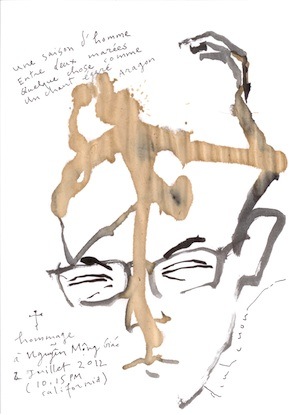 une saison d'homme
Entre deux marées
Quelque chose comme
un chant égaré Aragon
hommage
à Nguyễn Mộng Giác
2 Juillet 2012
(10.15PM
california)